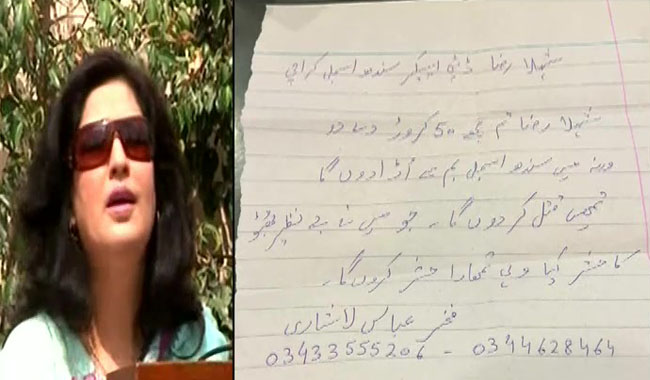 شہلا رضا ڈپٹی اسپیکر سندھ اسمبلی کراچی
شہلا رضا تم مجھے 50 کروڑ دے دو
ورنہ میں سندھ اسمبلی بم سے اُڈا دوں گا
تمھیں قتل کر دوں گا۔ جو میں نے بے نظیر بھٹو
کا حشر کیا وہی تمھارا حشر کروں گا۔
فخر عباس لاشاری
03433555206 - 0344628464